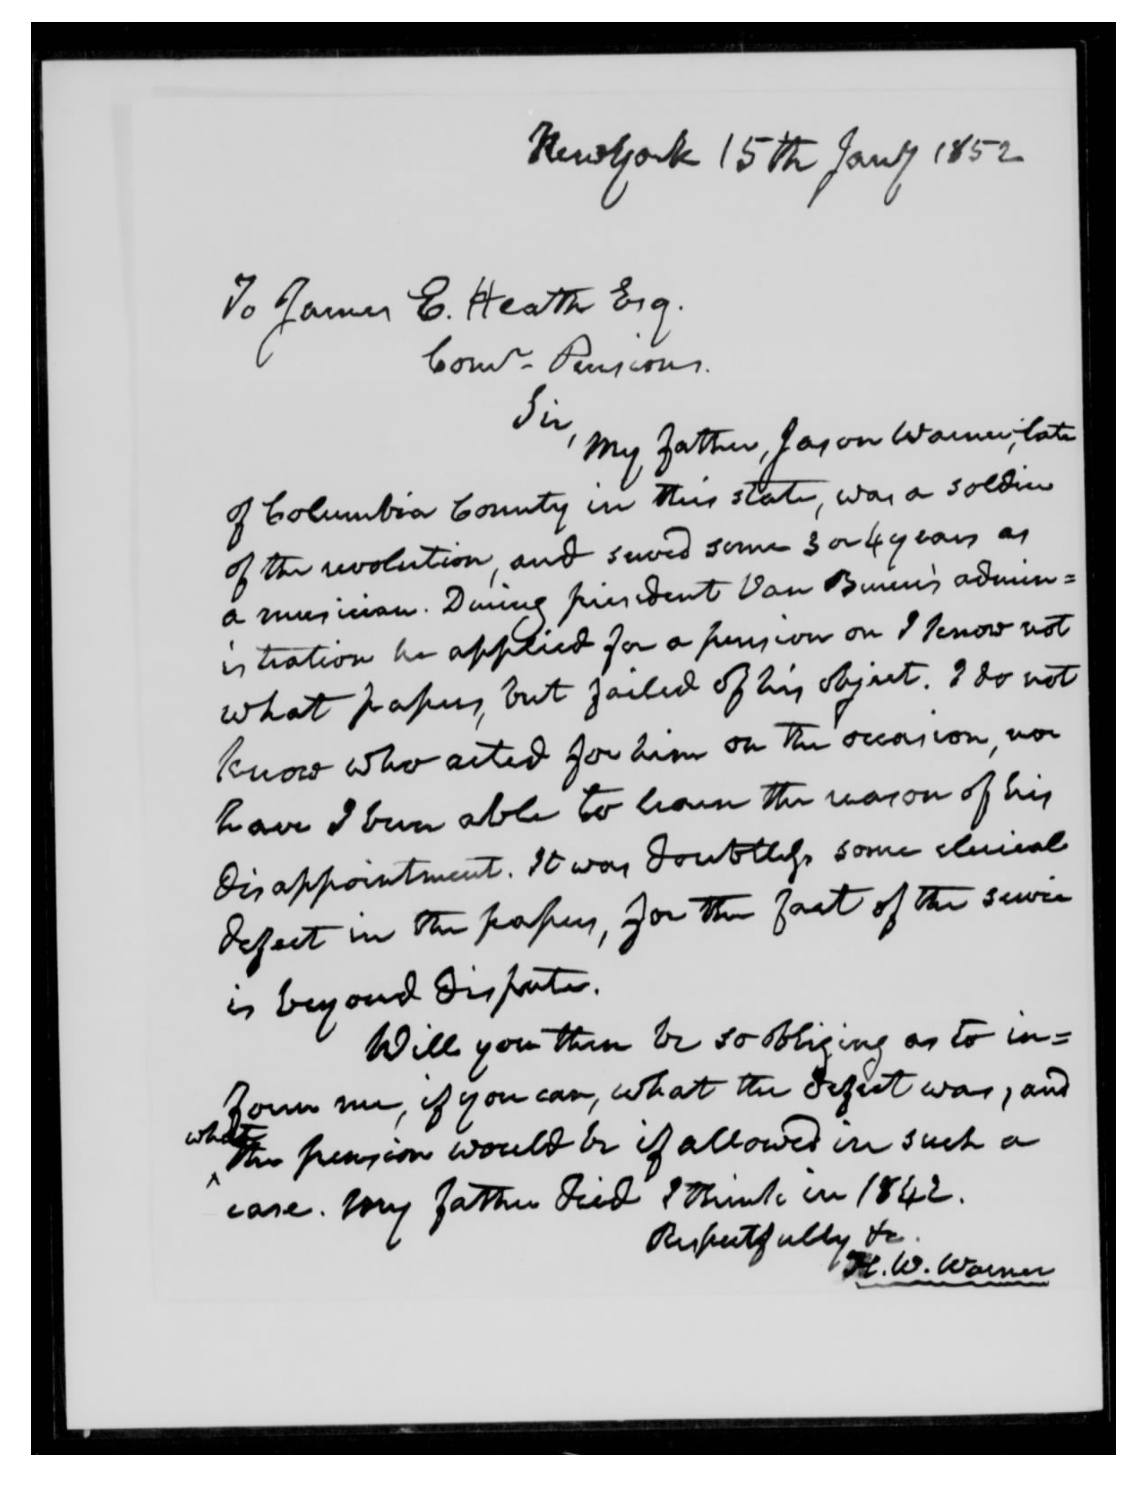 New York 15th Jany 1852
To James E. Heath Esq.
Comr. Pensions.
Sir,
My father, Jason Warner, late
of Columbia County in this state, was a soldier
of the revolution, and served some 3 or 4 years as
a musician. During president Van Buren's admin=
istration he applied for a pension on I know not
what papers, but failed of his object. I do not
know who acted for him on the occasion, nor
have I been able to learn the reason of his
disappointment. It was doubtless some clerical
defect in the papers, for the fact of the service
is beyond dispute.
Will you then be so obliging as to in=
form me, if you can, what the defect was, and
what
the pension would be if allowed in such a
case. My father died I think in 1842.
Respectfully &c.
H. W. Warner